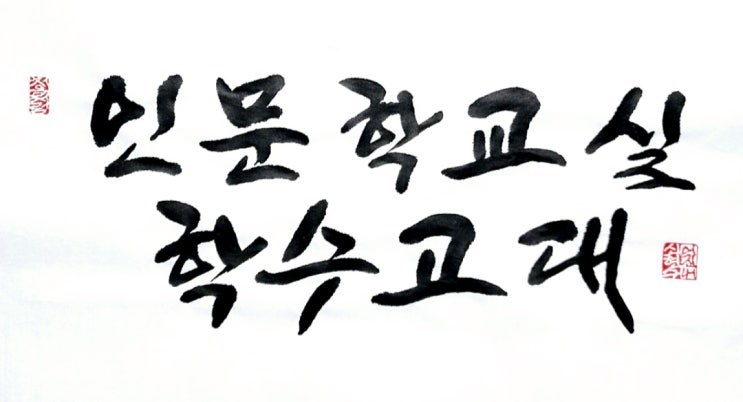 인문학교실
학수고대